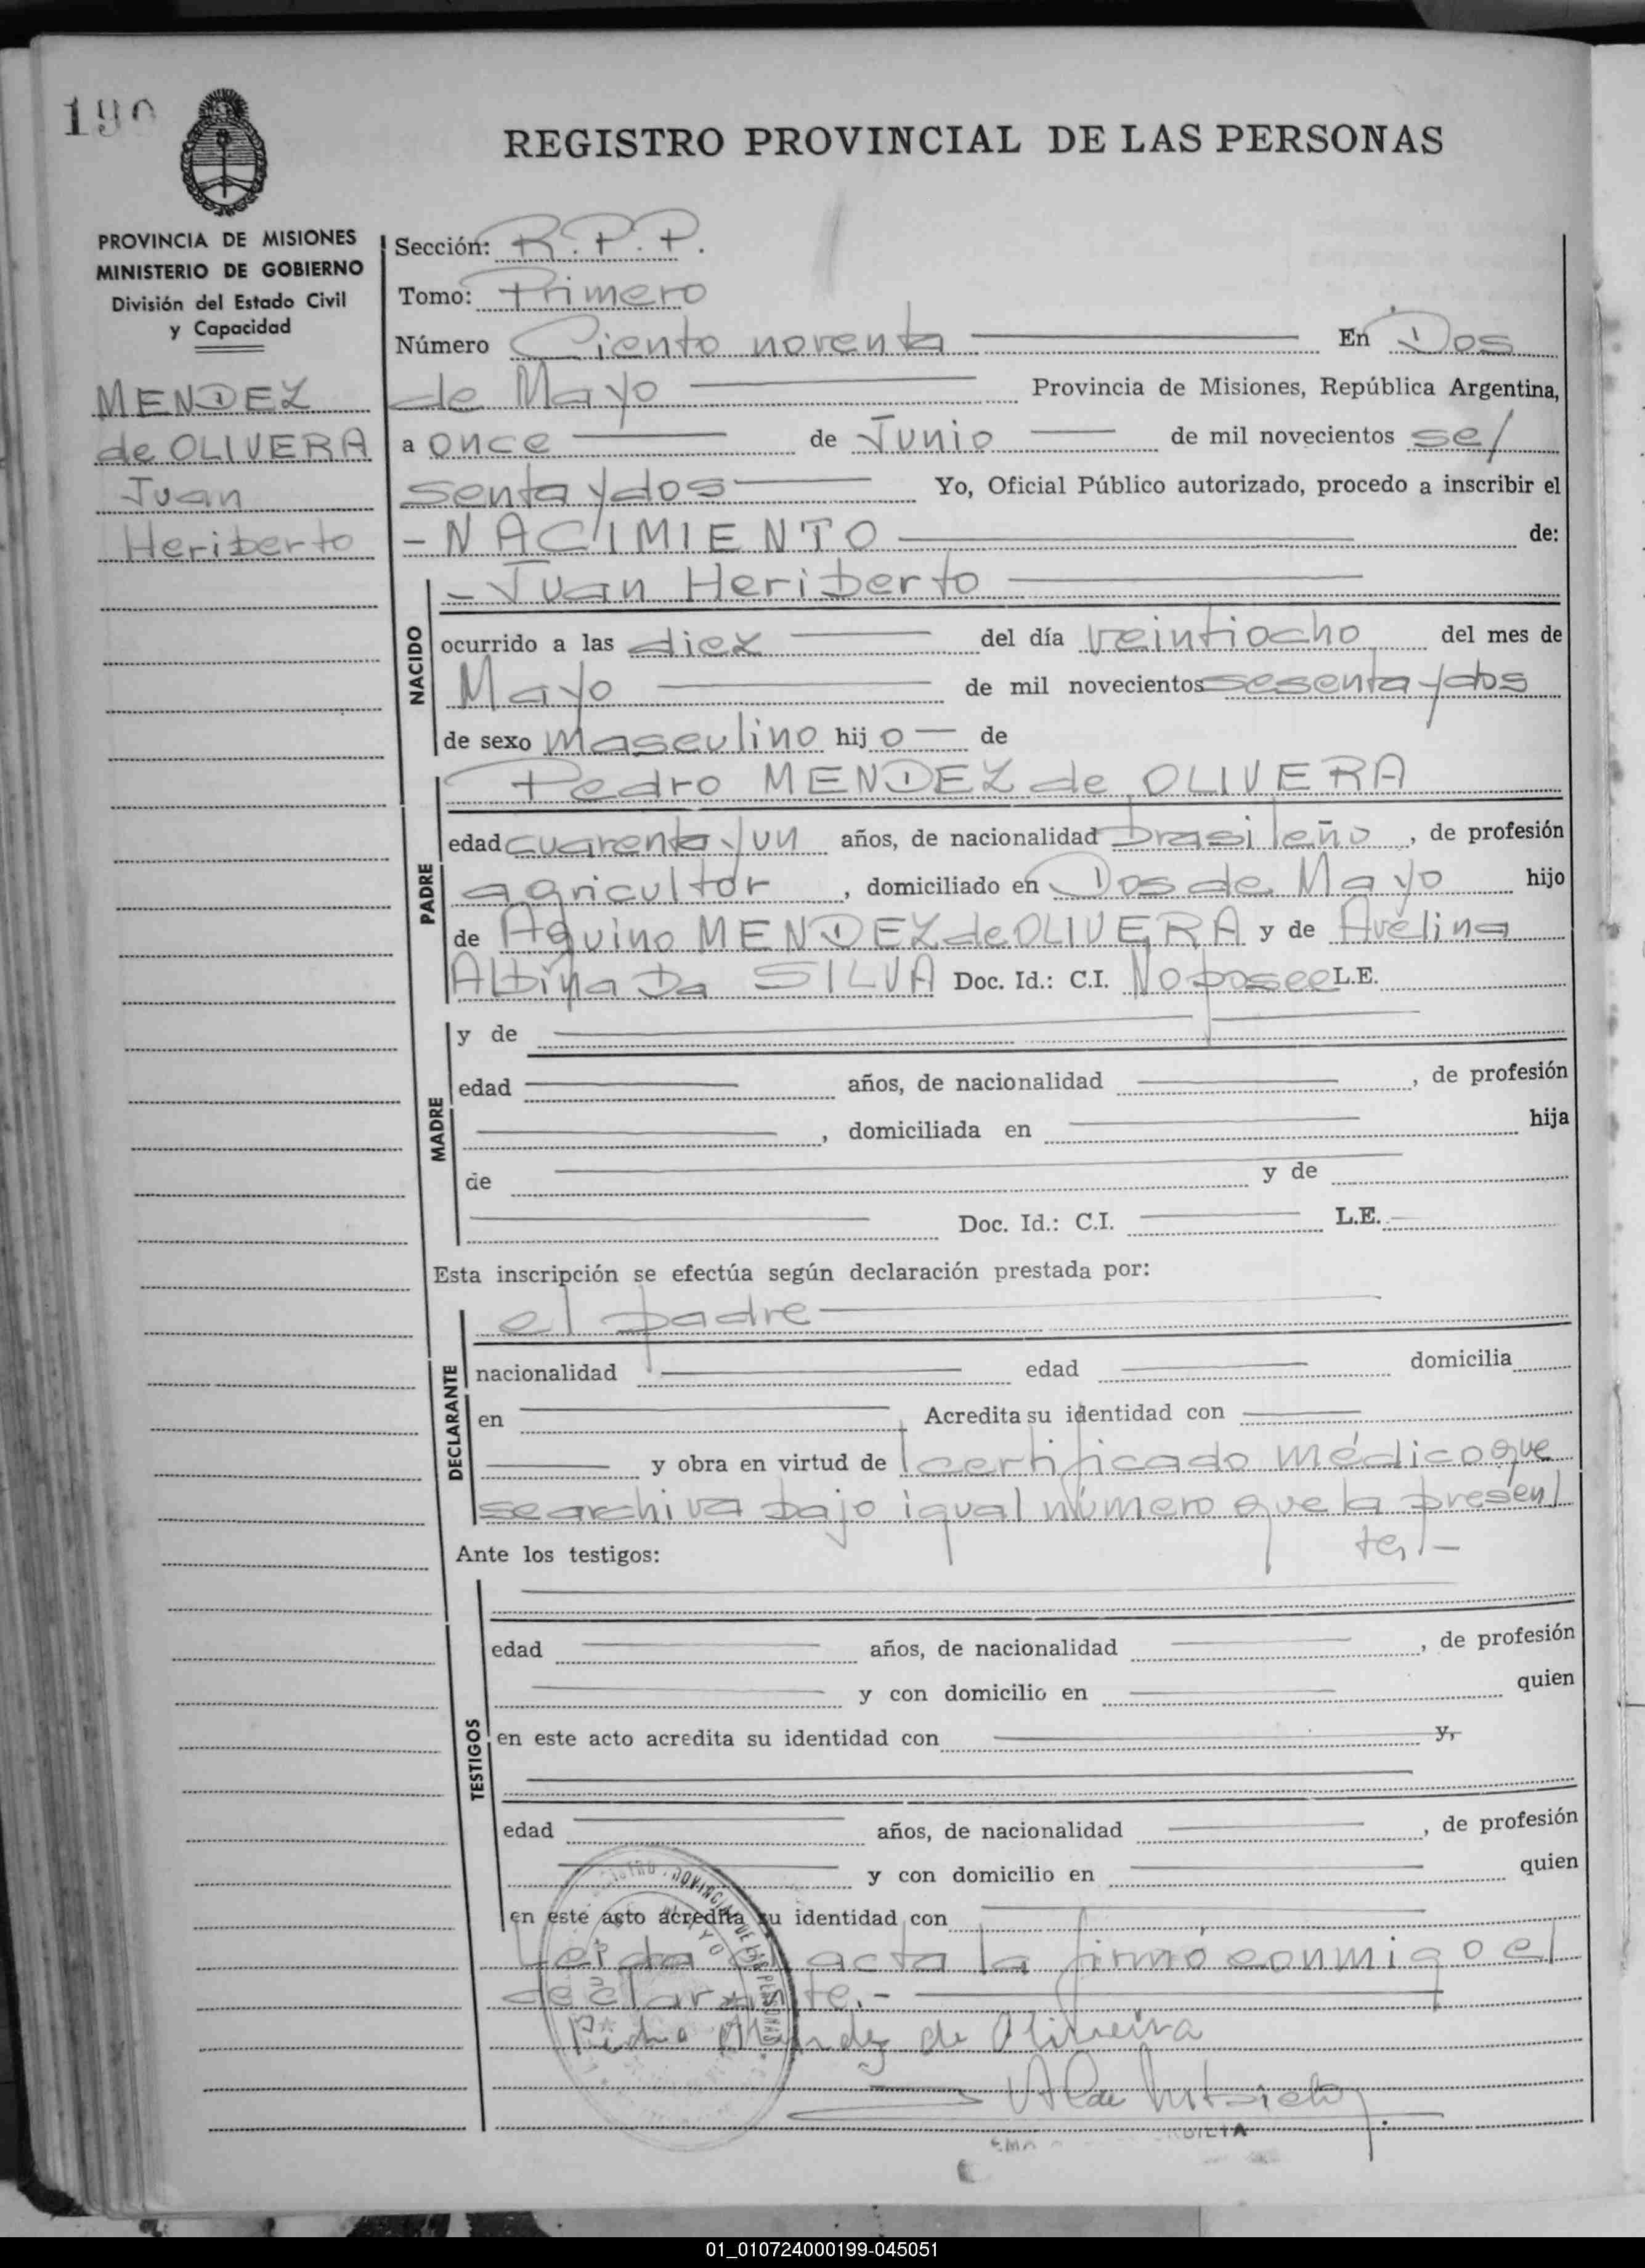 190
REGISTRO PROVINCIAL DE LAS PERSONAS
PROVINCIA DE MISIONES
MINISTERIO DE GOBIERNO
División del Estado Civil
y Capacidad
MENDEZ
de OLIVERA
Juan
Heriberto
Sección: R.P.P.
Tomo: Primero
Número Ciento noventa En Dos
de Mayo Provincia de Misiones, República Argentina,
a once de Junio de mil novecientos se/
senta y dos Yo, Oficial Público autorizado, procedo a inscribir el
- NACIMIENTO de:
NACIDO
- Juan Heriberto
ocurrido a las diez del día veintiocho del mes de
Mayo de mil novecientos sesenta y dos
de sexo masculino hijo de
PADRE
Pedro MENDEZ de OLIVERA
edad cuarenta y un años, de nacionalidad brasileño, de profesión
agricultor, domiciliado en Dos de Mayo hijo
de Aquino MENDEZ de OLIVERA y de Avelina
Albina Da SILVA Doc. Id.: C.I. No posee L.E.
MADRE
y de
edad años, de nacionalidad , de profesión
, domiciliada en hija
de y de
Doc. Id.: C.I. L.E.
Esta inscripción se efectúa según declaración prestada por:
DECLARANTE
el padre
nacionalidad edad domicilia
en Acredita su identidad con
y obra en virtud de certificado médico que
se archiva bajo igual número que la presen/
te,-
Ante los testigos:
TESTIGOS
edad años, de nacionalidad , de profesión
y con domicilio en quien
en este acto acredita su identidad con y,
edad años, de nacionalidad , de profesión
y con domicilio en quien
en este acto acredita su identidad con
Leida el acta la firmó conmigo el
declarante.-
Pedro Mendez de Oliveira
01_010724000199-045051